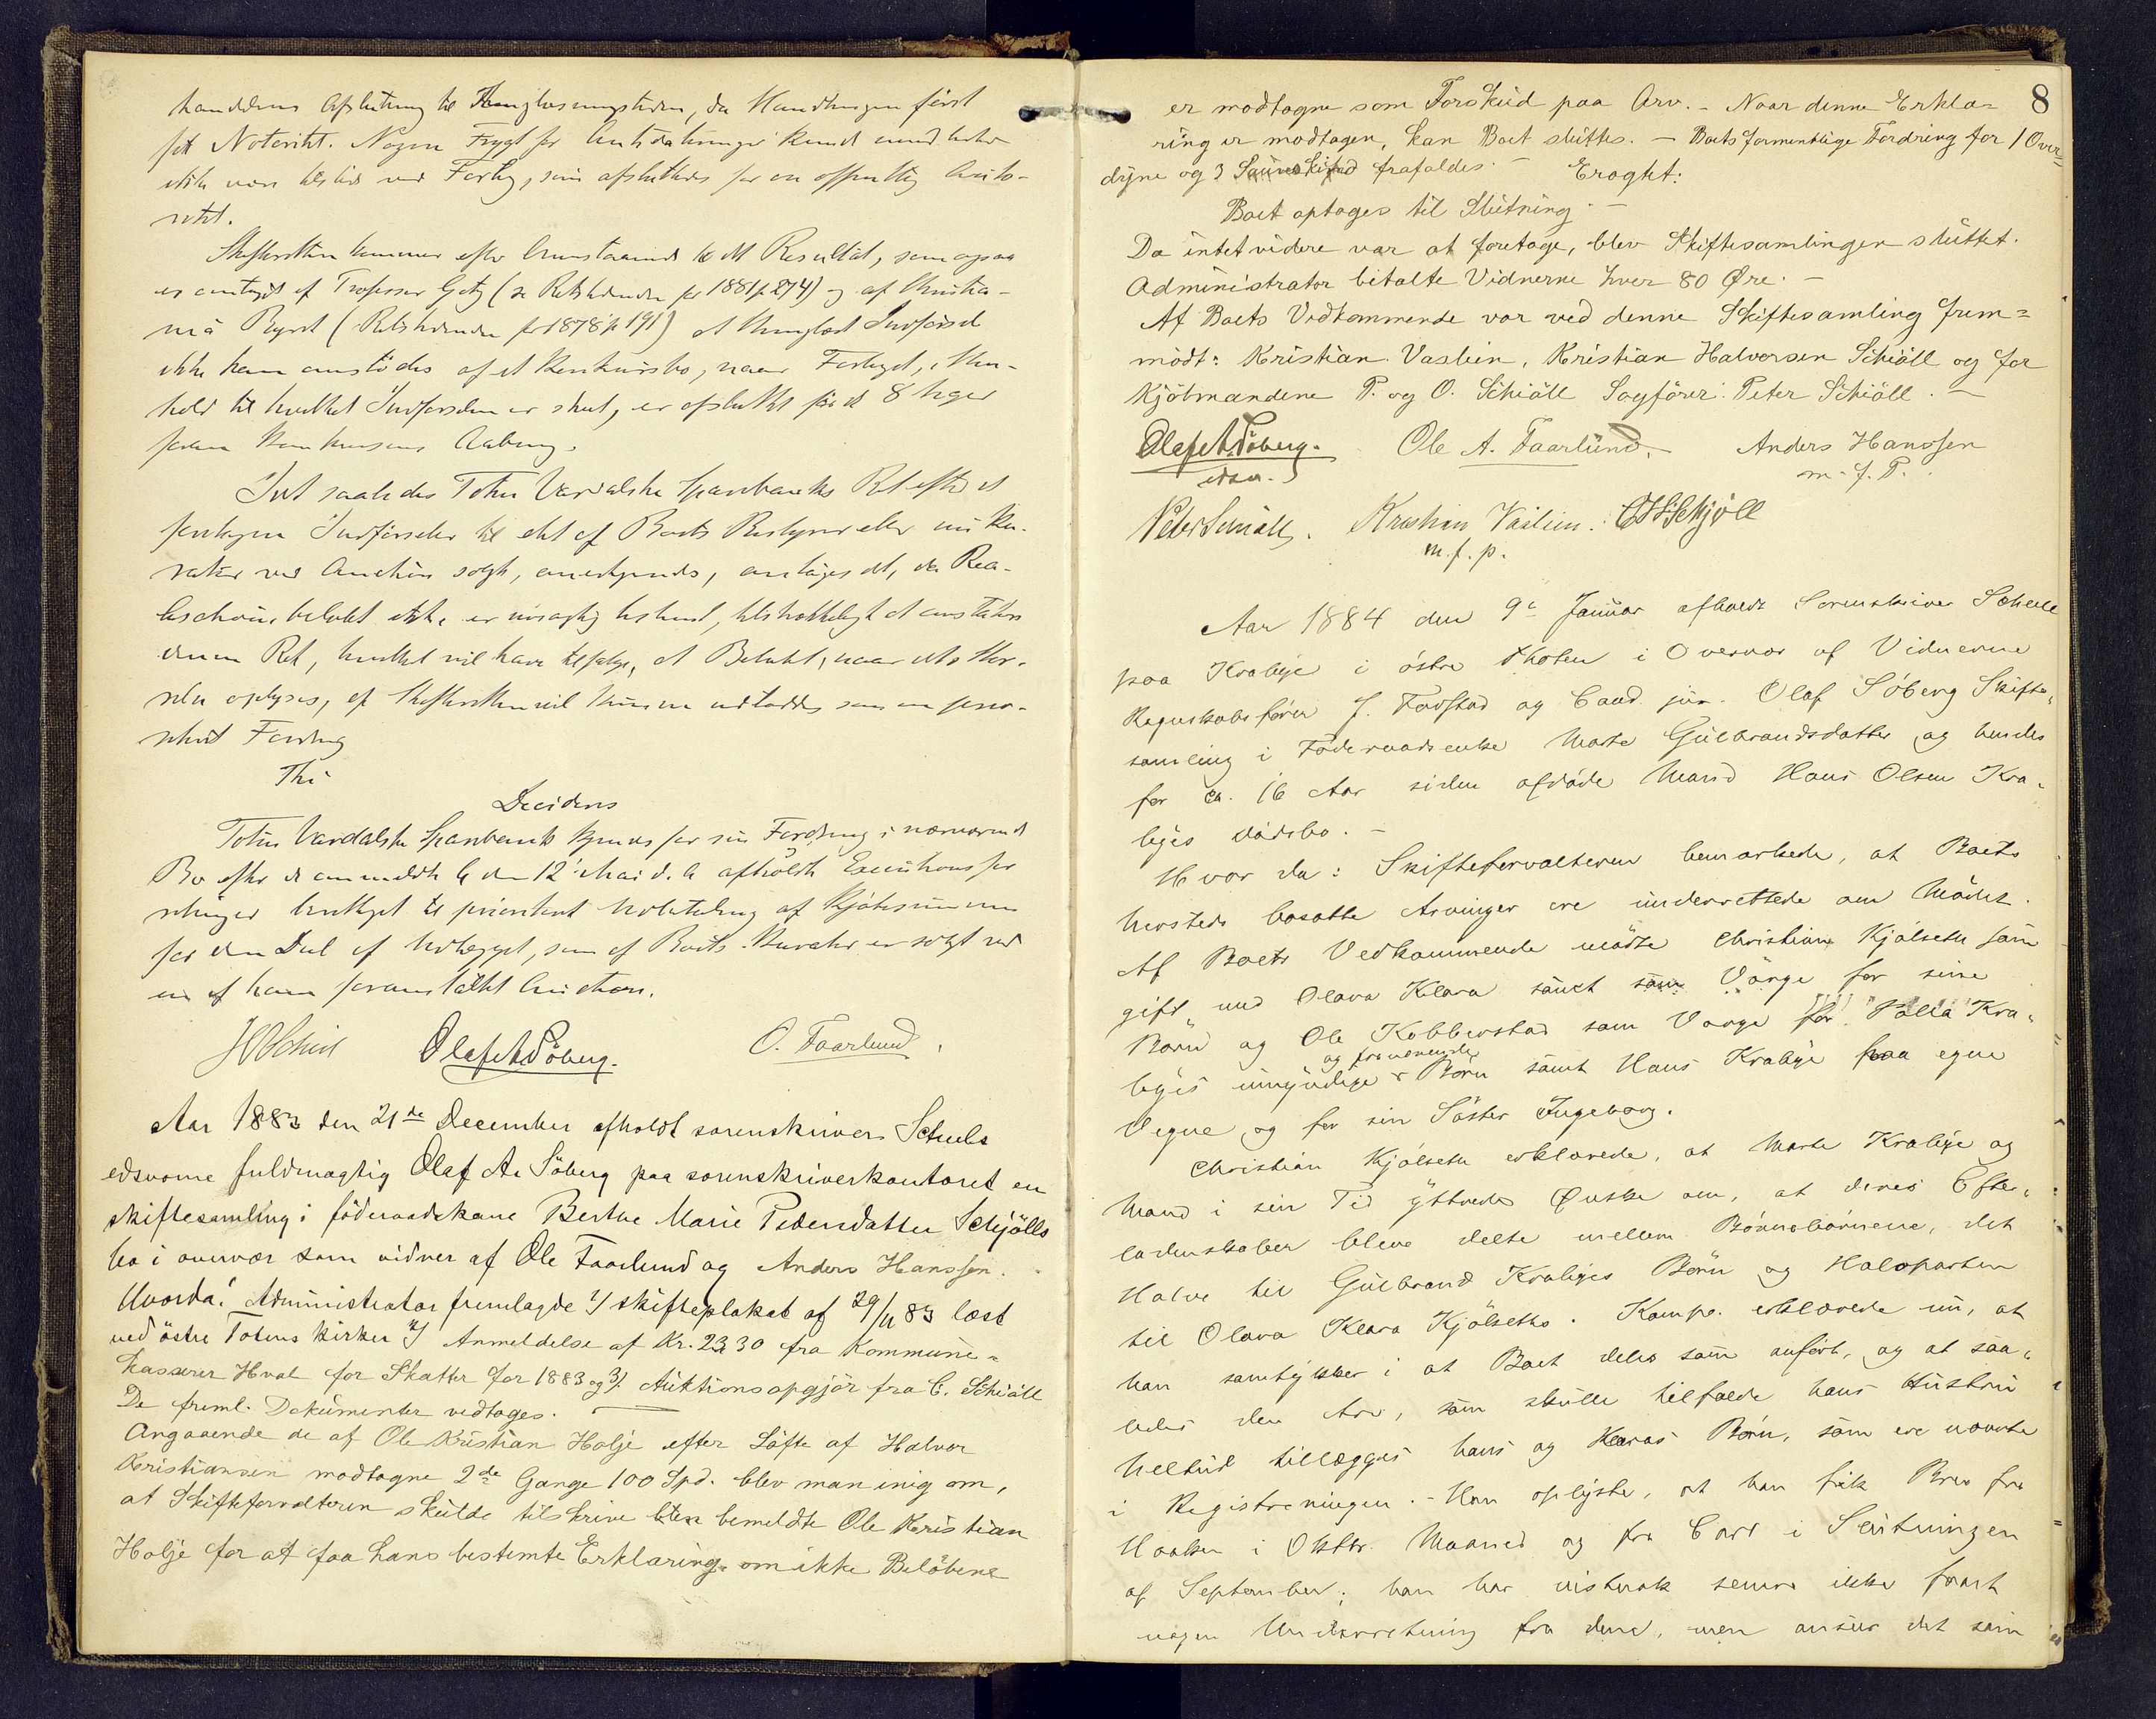 handlens Afslutning til Thinglæsningstiden, da Handlingen först
fik Notoritet. Nogen Frygt for Antidateringer kunde imidlertid
ikke være tilstede ved Forlig, som afsluttedes for en offentlig Auto-
ritet.
Skifteretten kommer efter Ovenstaaende til det Resultat, som ogsaa
er antaget af Professor Getz (se Retstidende for 1881 p. 274) og af Christia-
nia Byret (Retstidende for 1878 p 191) at thinglæst Indförsel
ikke kan omstödes af et Konkursbo, naar Forliget, i Hen-
hold til hvilket Indförselen er skeet, er afsluttet för de 8 Uger
foran Konkursens Aabning.
Idet saaledes Toten Vardalske Sparebanks Ret efter de
foretagne Indförsler til det af Boets Bestyrer eller
ved Auction solgte, anerkjendes, antages det, da
belöbet ikke er nöiagtig bestemt, tilstrækkeligt at constatere
denne Ret, hvilket vil have tilfölge, at Belöbet, naar dets Stör-
relse oplyses, af Skifteretten vil kunne udlægges som en prio-
riteret Fordring
Thi
Decideres
Toten Vardalske Sparebank kjendes for sin Fordring i nærværende
Bo efter de anmeldte den 12' Mai d. A. afholdte Executionsfor-
retninger berettiget til prioriteret Udbetaling af Kjöbesummen
for den Del af Udlægget, som af Boets Curator er solgt ved
en af ham foranstaltet Auction.
Olaf A. Söberg. O. Faarlund.
Aar 1883 den 21de December afholdt sorenskriver Scheels
edsvorne fuldmægtig Olaf A. Söberg paa sorenskriverkontoret en
skiftesamling i föderaadskone Berthe Marie Pedersdatter Schjölls
bo i overvær som vidner af Ole Faarlund og Anders Hanssen.
Hvorda: Administrator fremlagde 1/ skifteplakat af 29/11 83 læst
ved östre Totens kirker 2/ Anmeldelse af Kr. 23,30 fra Kommune-
kasserer Hval for Skatter for 1883 og 3/ Auktionsopgjör fra C. Schiöll
De freml. Dokumenter vedtoges.
Angaaende de af Ole Kristian Holje efter Löfte af Halvor
Kristiansen modtagne 2de Gange 100 Spd. blev man enig om,
at Skifteforvalteren skulde tilskrive bemeldte Ole Kristian
Holje for at faa hans bestemte Erklæring om ikke Belöbene
8
er modtagne som Forskud paa Arv. – Naar denne Erklæ-
ring er modtagen, kan Boet sluttes. – Boets formentlige Fordring for 1 Over-
dyne og 3 frafaldes. – Eragtet:
Boet optages til Slutning. –
Da intet videre var at foretage, blev Skiftesamlingen sluttet.
Administrator betalte Vidnerne hver 80 Øre. –
Af Boets Vedkommende var ved denne Skiftesamling frem-
mödt: Kristian Vaslien, Kristian Halvorsen Schiöll og for
Kjöbmændene P. og O. Schiöll Sagförer Peter Schiöll. –
Olaf A. Söberg. Ole A. Faarlund. Anders Hanssen
edsv. m. f. P.
Peter Schiöll. Kristian Vaslien. Schjöll
m. f. p.
Aar 1884 den 9de Januar afholdt Sorenskriver Scheel
paa Kraleje i östre Thoten i Overvær af Vidnerne
Regnskabsförer J. Fodstad og Cand. jur. Olaf Söberg Skifte-
samling i Föderaadsenke Marte Gulbrandsdatter og hendes
for ca. 16 Aar siden afdöde Mand Hans Olsen Kra-
lejes dödsbo. –
Hvor da: Skifteforvalteren bemærkede, at Boets
hersteds bosatte Arvinger ere underrettede om Mödet.
Af Boets Vedkommende mödte Christian Kjölseth som
gift med Olava Klara samt som Værge for sine
Börn og Ole Kobberstad som Værge for Kra-
lejes umyndige og fraværende Börn samt Hans Kraleje paa egne
Vegne og for sin Söster Ingeborg.
Christian Kjölseth erklærede, at Marte Kraleje og
Mand i sin Tid yttrede Ønske om, at deres Efter-
ladenskaber bleve delte mellem Börnebörnene, det
Halve til Gulbrand Kralejes Börn og Halvparten
til Olava Klara Kjölseths. Komp. erklærede nu, at
han samtykker i at Boet deles som anfört, og at saa-
ledes den Arv, som skulle tilfalde hans Hustru
Heltud tillægges hans og Klaras Börn, som ere nævnte
i Registreringen. – Han oplyste, at han fik Brev fra
Haakon i Oktbr. Maaned og fra Carl i Slutningen
af September; han har vistnok senere ikke faaet
nogen Underretning fra dem, men anser det som